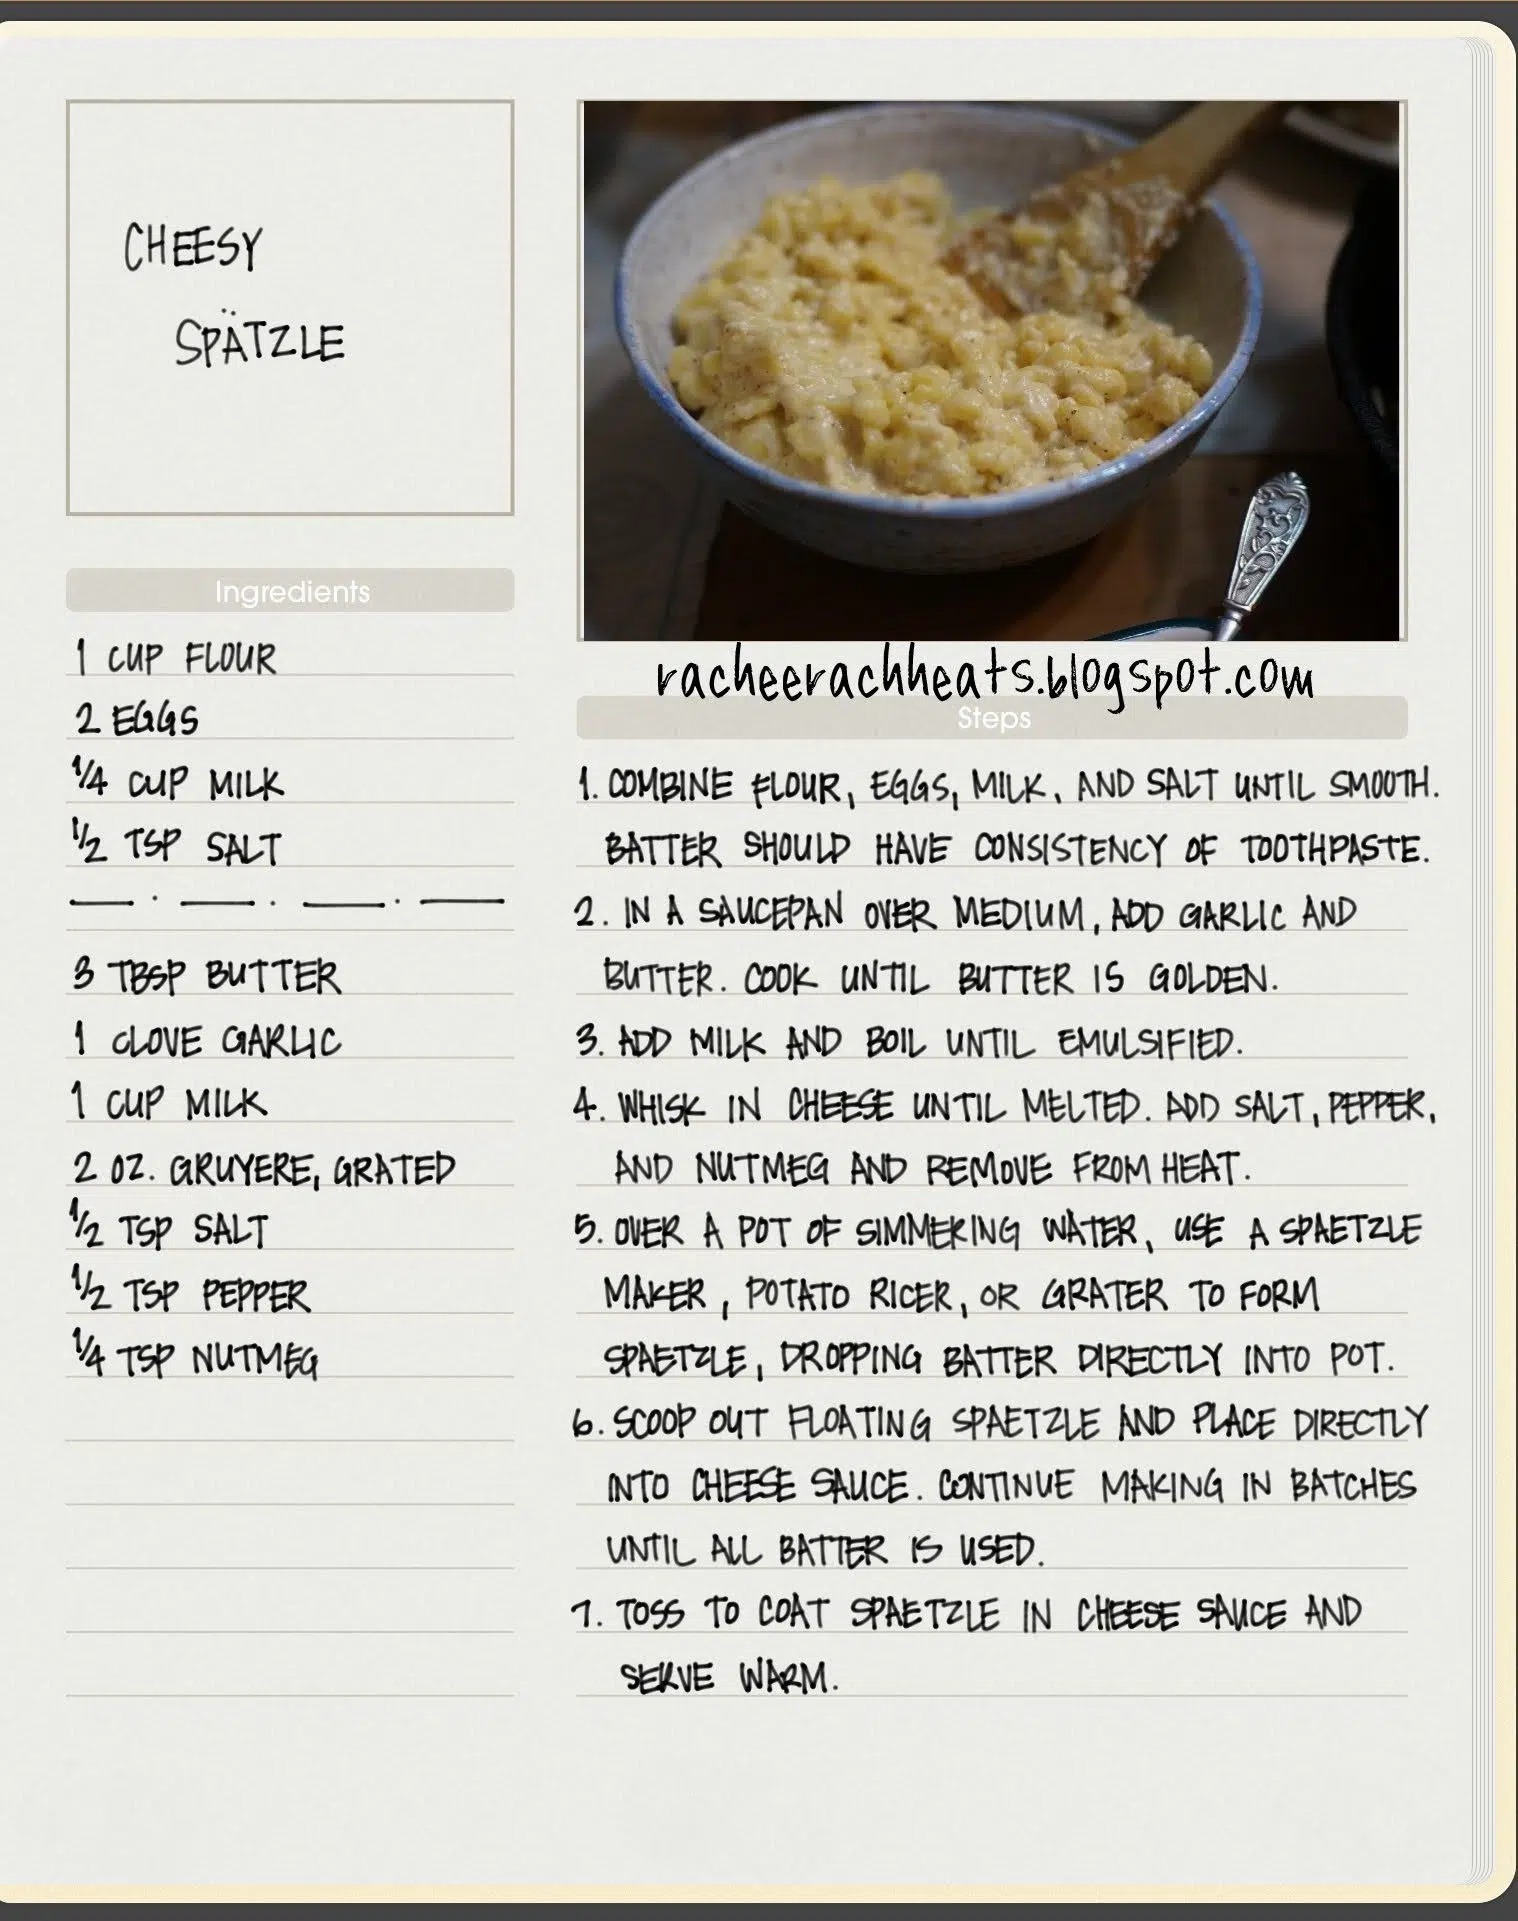 CHEESY
SPÄTZLE
Ingredients
1 CUP FLOUR
2 EGGS
1/4 CUP MILK
1/2 TSP SALT
3 TBSP BUTTER
1 CLOVE GARLIC
1 CUP MILK
2 OZ. GRUYERE, GRATED
1/2 TSP SALT
1/2 TSP PEPPER
1/4 TSP NUTMEG
racheerachheats.blogspot.com
Steps
1. COMBINE FLOUR, EGGS, MILK, AND SALT UNTIL SMOOTH.
BATTER SHOULD HAVE CONSISTENCY OF TOOTHPASTE.
2. IN A SAUCEPAN OVER MEDIUM, ADD GARLIC AND
BUTTER. COOK UNTIL BUTTER IS GOLDEN.
3. ADD MILK AND BOIL UNTIL EMULSIFIED.
4. WHISK IN CHEESE UNTIL MELTED. ADD SALT, PEPPER,
AND NUTMEG AND REMOVE FROM HEAT.
5. OVER A POT OF SIMMERING WATER, USE A SPAETZLE
MAKER, POTATO RICER, OR GRATER TO FORM
SPAETZLE, DROPPING BATTER DIRECTLY INTO POT.
6. SCOOP OUT FLOATING SPAETZLE AND PLACE DIRECTLY
INTO CHEESE SAUCE. CONTINUE MAKING IN BATCHES
UNTIL ALL BATTER IS USED.
7. TOSS TO COAT SPAETZLE IN CHEESE SAUCE AND
SERVE WARM.